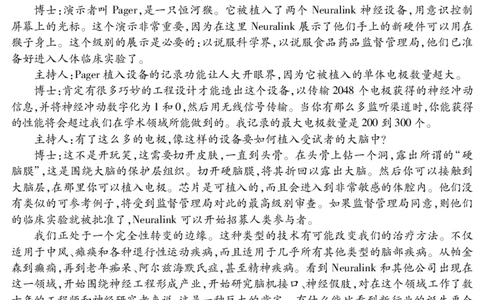 博士:演示者叫 Pager,是一只恒河猴。它被植入了两个 Neuralink 神经设备,用意识控制
屏幕上的光标。这个演示非常重要,因为在这里 Neuralink 展示了他们手上的新硬件可以用在
猴子身上。这个级别的展示是必要的:以说服科学界,以说服食品药品监督管理局,他们已准
备好进入人体临床实验了。
主持人:Pager 植入设备的记录功能让人大开眼界,因为它被植入的单体电极数量超大。
博士:肯定有很多巧妙的工程设计才能造出这个设备,以传输 2048 个电极获得的神经冲动
信息,并将神经冲动数字化为 1 和 0,然后用无线信号传输。当你有那么多监听渠道时,你能获得
的性能将会超过我们在学术领域所能做到的。我记录的最大电极数量是 200 到 300 个。
主持人:有了这么多的电极,像这样的设备要如何植入受试者的大脑中?
博士:这不是开玩笑,这需要切开皮肤,一直到头骨。在头骨上钻一个洞,露出所谓的“硬
脑膜”,这是围绕大脑的保护层组织。切开硬脑膜,将其折回以露出大脑。然后你可以接触到
大脑层,在那里你可以植入电极。芯片是可植入的,而且会进入到非常敏感的体腔内。他们没
有类似的可参考例子,将受到监督管理局对此的最高级别审查。如果监督管理局同意,则他们
的临床实验就被批准了,Neuralink 可以开始招募人类参与者。
我们正处于一个完全性转变的边缘。这种类型的技术有可能改变我们的治疗方法。不仅
适用于中风、瘫痪和各种退行性运动疾病,而且适用于几乎所有其他类型的脑部疾病。从帕金
森到癫痫,再到老年痴呆、阿尔兹海默氏症,甚至精神疾病。看到 Neuralink 和其他公司出现在
这一领域,开始围绕神经工程形成产业,开始研究脑机接口、神经假肢,对在这个领域工作了数